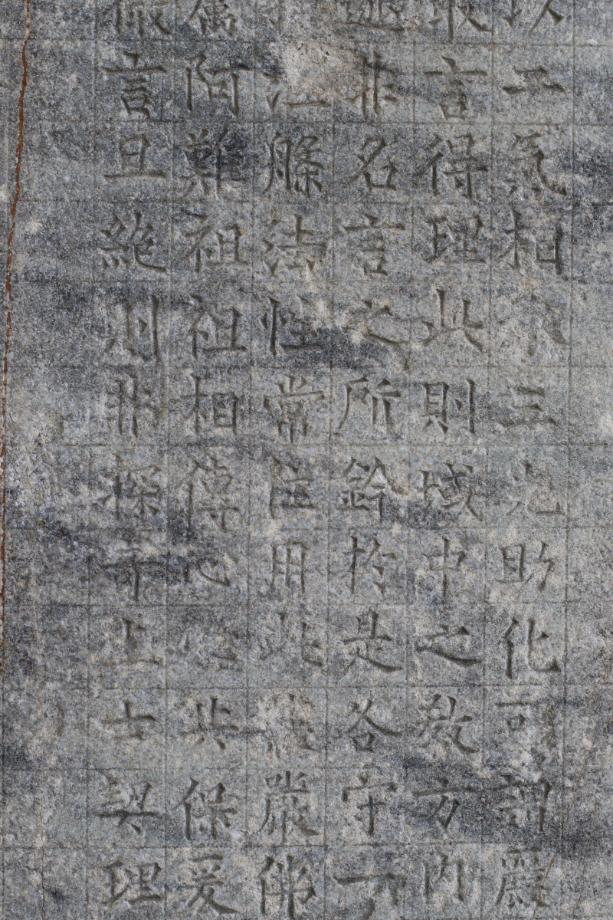 以二氣相三光助化可謂嚴
取言得理此則域中之教方內
非名言之所於是各守一
法性常住用此嚴佛
屬阿難祖祖相傳心心共保爰
微言旦絕則非探奇上士契理